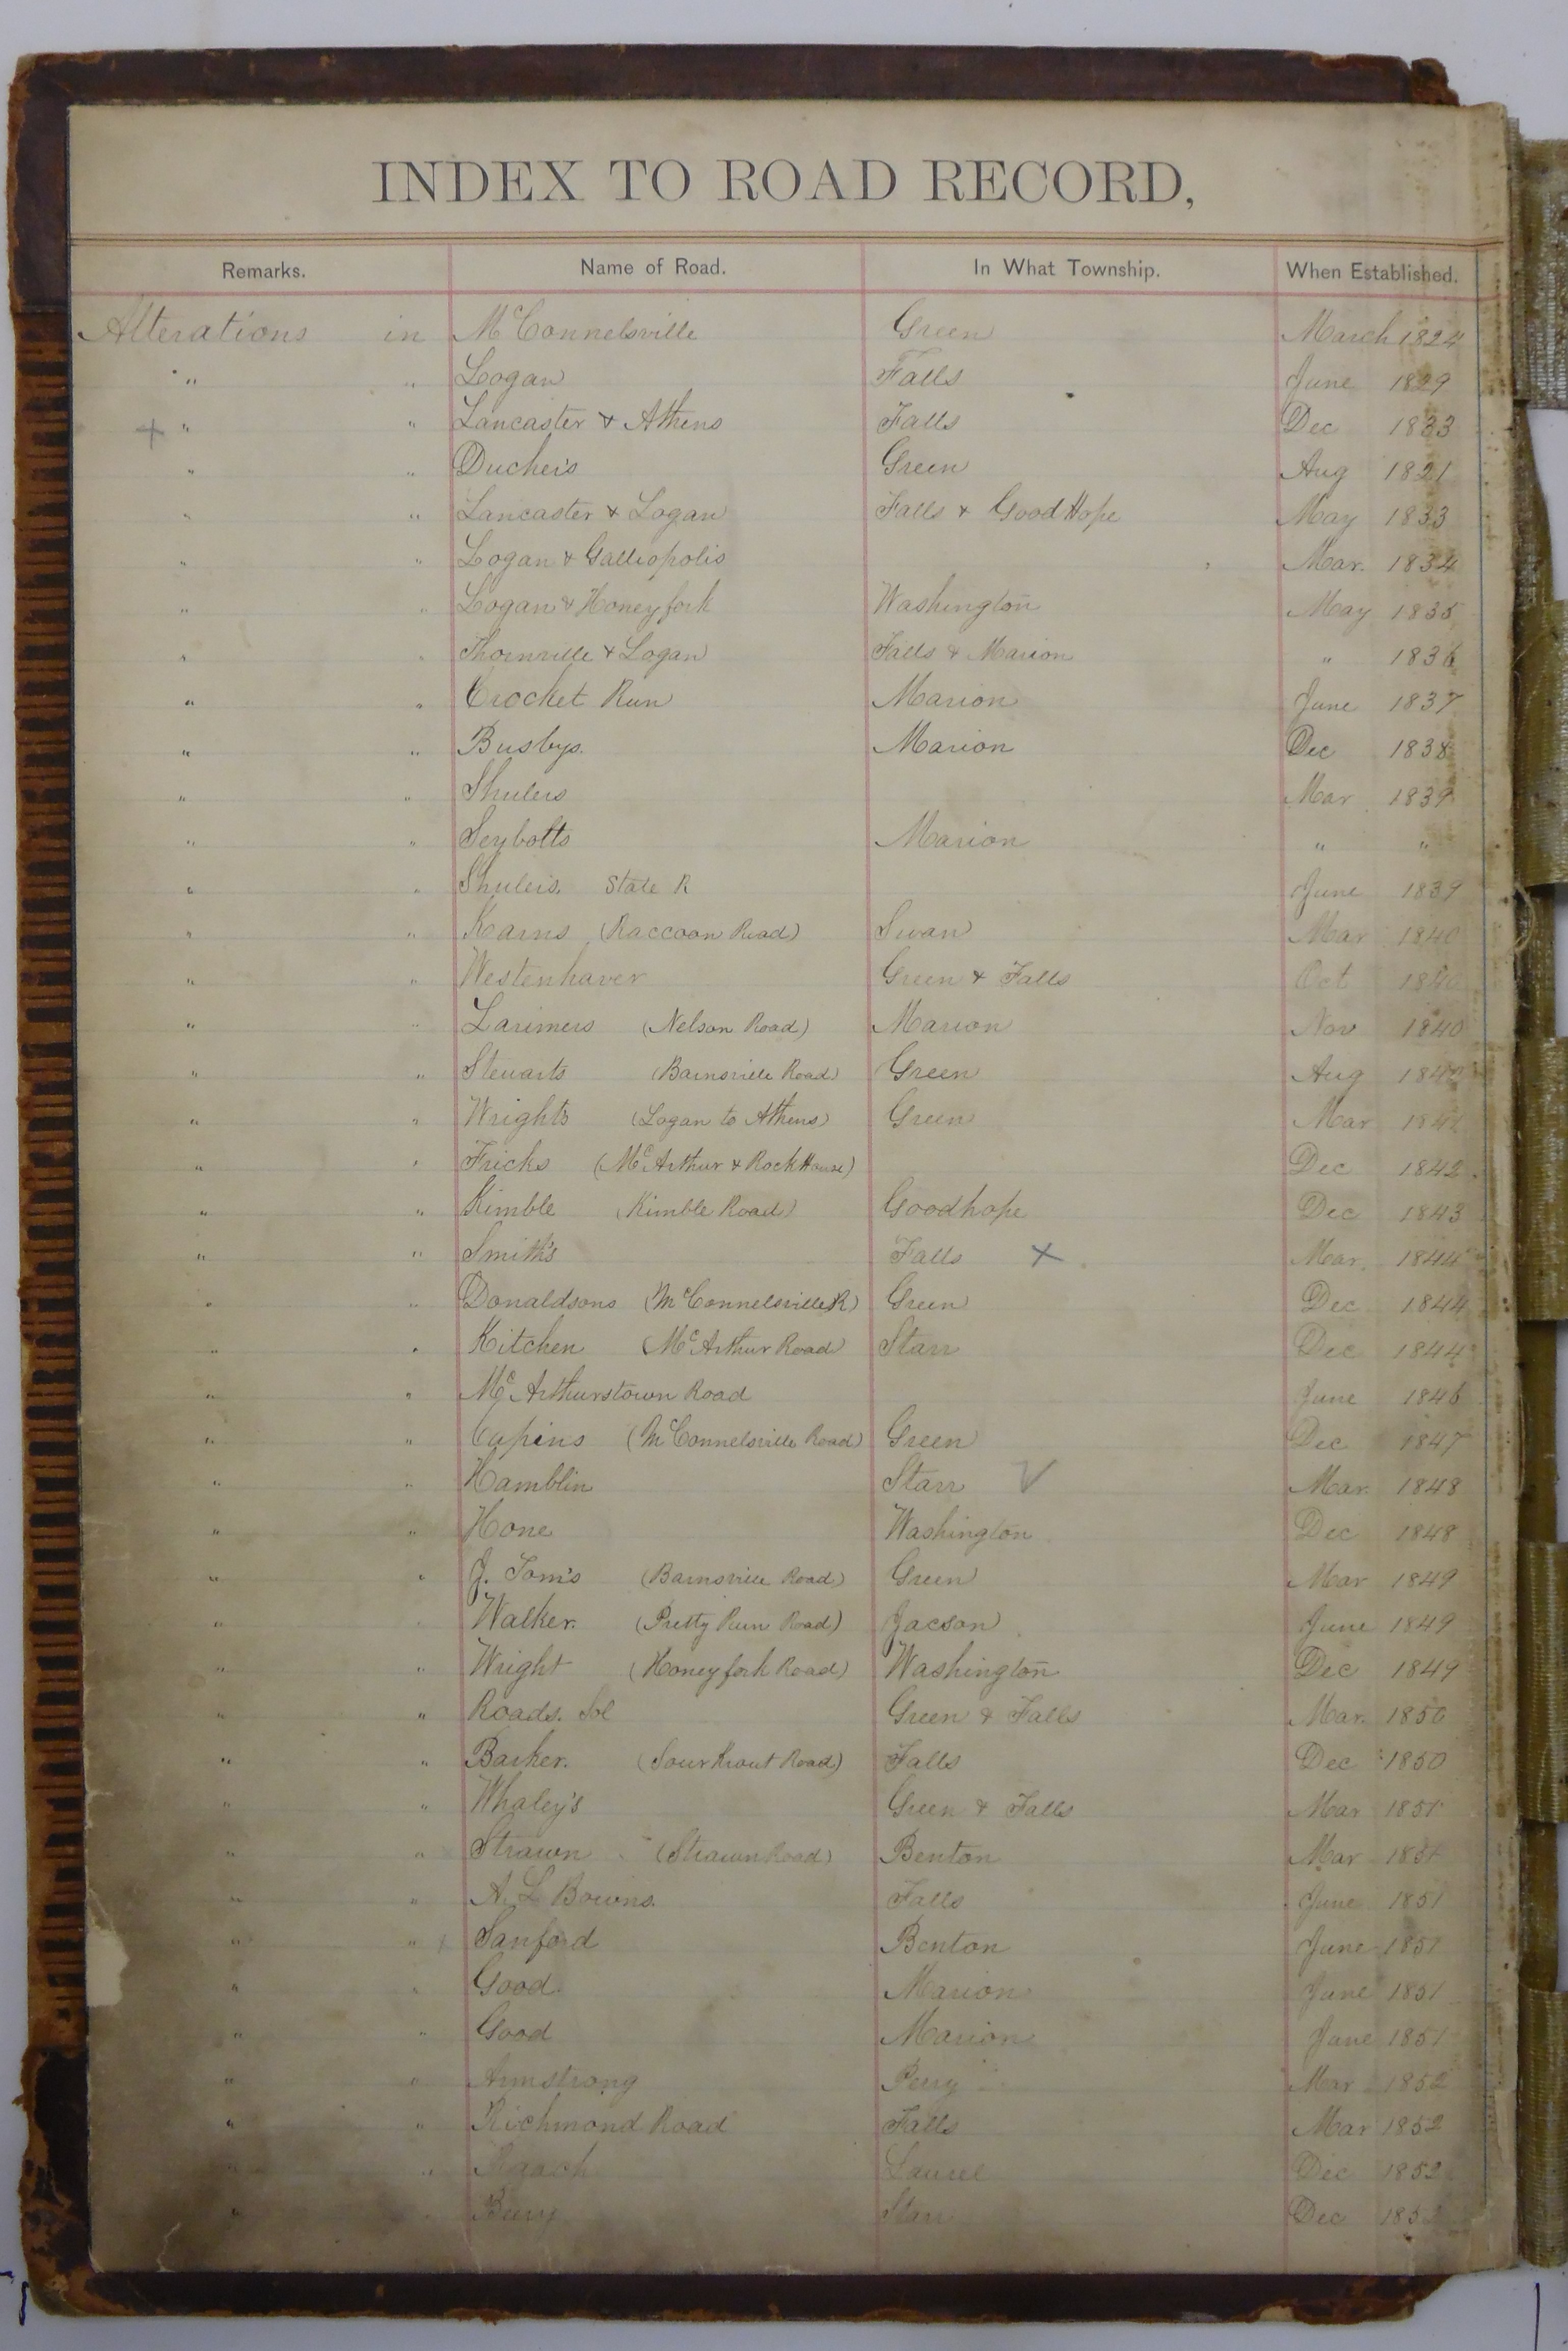 INDEX TO ROAD RECORD,
Remarks. Name of Road. In What Township. When Established.
Alterations in McConnelsville Green March 1824
" " Logan Falls June 1829
+ " " Lancaster & Athens Falls Dec 1833
" " Ducheis Green Aug 1821
" " Lancaster & Logan Falls & Good Hope May 1833
" " Logan & Galliopolis Mar. 1834
" " Logan & Honey fork Washington May 1835
" " Thornville & Logan Falls & Marion " 1836
" " Crocket Run Marion June 1837
" " Busbys. Marion Dec 1838
" " Shulers Mar 1839
" " Seybolts Marion " "
" " Shulers. State R June 1839
" " Karns (Raccoon Road) Swan Mar 1840
" " Westenhaver Green & Falls Oct 1840
" " Larimers (Nelson Road) Marion Nov 1840
" " Stewarts (Barnsville Road) Green Aug
" " Wrights (Logan to Athens) Green Mar
" " Fricks (McArthur & Rock House) Dec 1842
" " Kimble (Kimble Road) Goodhope Dec 1843
" " Smith's Falls x Mar. 1844
" " Donaldsons (McConnelsville R) Green Dec 1844
" " Kitchen (McArthur Road) Starr Dec 1844
" " McArthurstown Road June 1846
" " Capins (McConnelsville Road) Green Dec 1847
" " Hamblin Starr ✓ Mar. 1848
" " Hone Washington Dec 1848
" " J. Tom's (Barnsville Road) Green Mar 1849
" " Walker. (Pretty Run Road) Jacson June 1849
" " Wright (Honey fork Road) Washington Dec 1849
" " Roads. Sol Green & Falls Mar. 1850
" " Barker. (Sour Krout Road) Falls Dec 1850
" " Whaley's Green & Falls Mar 1851
" " Strawn (Strawn Road) Benton Mar 1851
" " A. L Bowens. Falls June 1851
" " Sanford Benton June 1851
" " Good. Marion June 1851
" " Good Marion June 1851
" " Armstrong Perry Mar 1852
" " Richmond Road Falls Mar 1852
" " Laurel Dec 1852
" " Starr Dec